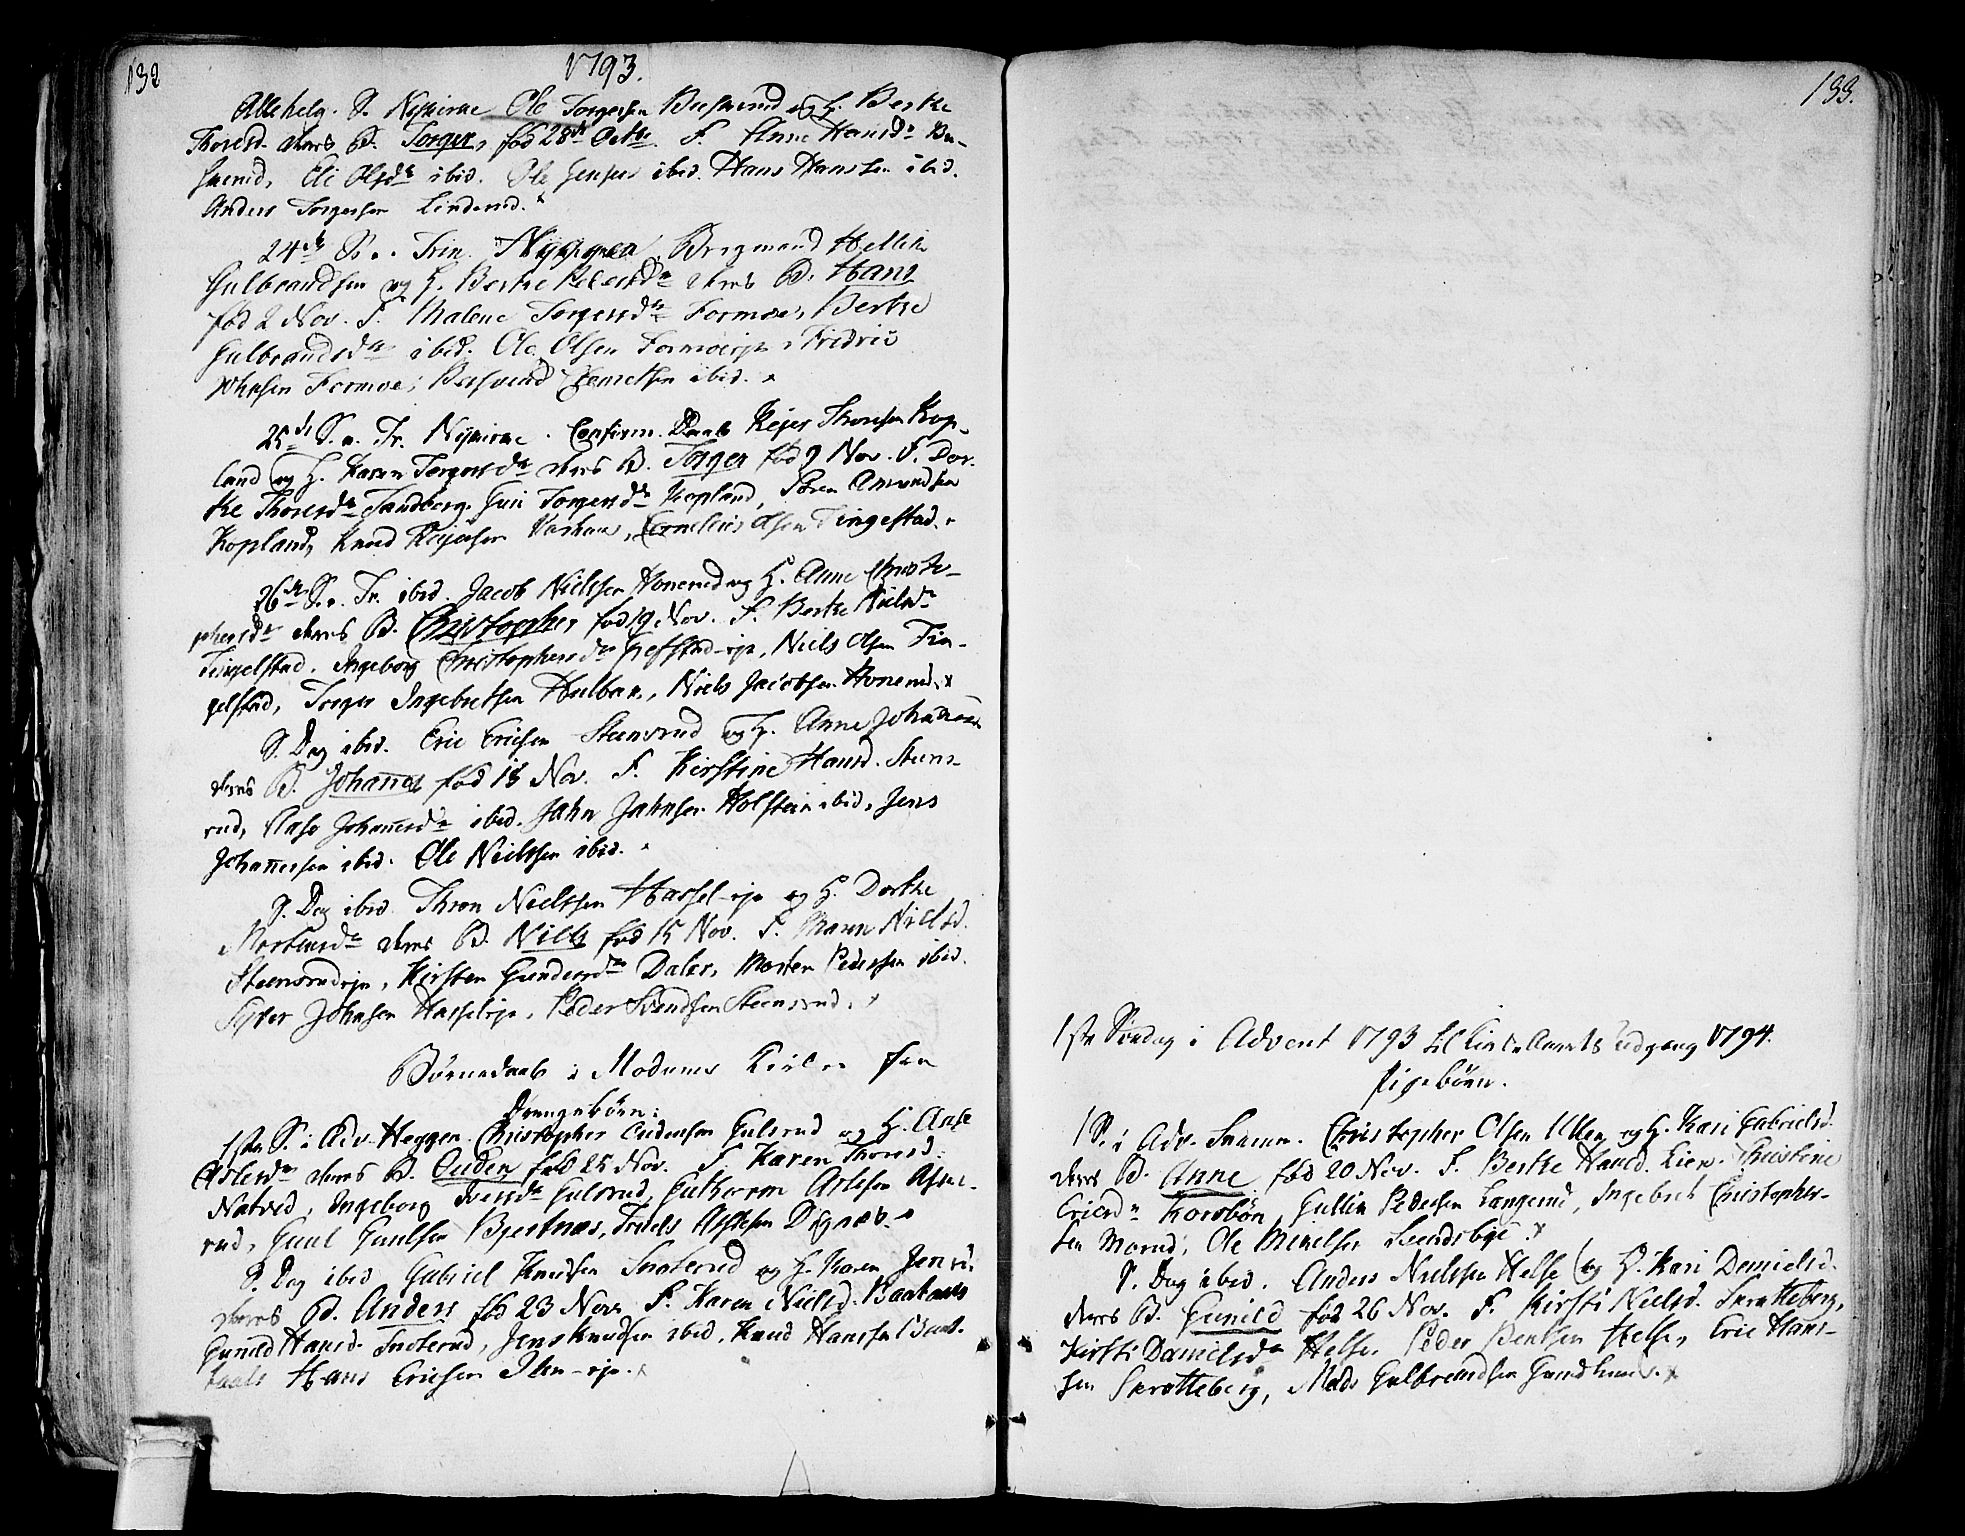 132
1793.
Allehelg. S. Nykirke Ole Torgersen Buskerud og H. Berthe
Thoresd. deres B. Torger, fød 28de Octbr. F. Anne Hansdr Bu-
skerud, Eli Olsdr ibid. Ole Jensen ibid. Hans Hanssen ibid.
Anders Torgersen Linderud.
24de S. e. Trin. Heggen Bergmand Hellik
Gulbrandsen og H. Berthe Pedersdr deres B. Hans
fød 2 Nov. F. Malene Torgersdr Formoe, Berthe
Gulbrandsdr ibid. Ole Olsen Formoeeje, Fridric
Johnsen Formoe,
25de S. e. Tr. Nykirke. Confirm. Daab Rejer Thorsen Kop-
land og H. Karen Torgersdr deres B. Torger fød 9 Nov. F. Dor-
the Thoresdr Sandberg. Guri Torgersdr Kopland, Søren Amundsen
Kopland, Knud Rejersen, Cornelius Olsen Tingelstad.
26de S. e. Tr. ibid. Jacob Nielsen Honerud og H. Anne Christo-
phersdr deres B. Christopher fød 19 Nov. F. Berthe Nielsdr
Tingelstad. Ingeborg Christophersdr Grefstad-eje, Niels Olsen Tin-
gelstad, Torger Ingebretsen Hulbak, Niels Jacobsen Honerud.
S. Dag ibid. Eric Ericsen Steensrud og H. Anne Johannesdr
deres B. Johannes fød 18 Nov. F. Kirstine Hansd. Steens-
rud, Aase Johannesdr ibid. Jahn Jahnsen Holstein ibid, Jens
Johannessen ibid. Ole Nielsen ibid.
S. Dag ibid. Thron Nielsen Hassel-eje og H. Dorthe
Mortensdr deres B. Niels fød 15 Nov. F. Maren Nielsd.
Steensrudeje, Kirsten Gundersdr Dalen, Morten Pedersen ibid.
Syver Johnsen Hasseleje, Peder Svendsen Steensrud.
Børnedaab i Modums Kirker fra
Drengebørn:
1ste S. i Adv. Heggen. Christopher Oudensen Gulsrud og H. Anne
Aslesdr deres B. Ouden, fød 25 Nov. F. Karen Thoresd.
Natved, Ingeborg Iversdr Gulsrud, Guthorm Aslesen
rud, Gaul Gaulsen Bjertnæs, Truls Aslesen
S. Dag ibid Gabriel Knudsen Snoterud og H. Karen Jensd.
deres B. Anders fød 23 Nov. F. Karen Nielsd.
Gunild Hansd. Snoterud, Jens Knudsen ibid, Knud Hanssen
Hans Ericsen
133.
1ste Søndag i Advent 1793 til Kirke-Aarets Udgang 1794.
Pigebørn.
1 S. i Adv. Snarum. Christopher Olsen Ulleen og H. Kari Gabrielsd.
deres B. Anne fød 20 Nov. F. Berthe Hansd. Lien. Christine
Ericsdr Korsbøn, Gullik Pedersen Langerud, Ingebret Christopher-
sen Morud, Ole Mikelsen
S. Dag ibid. Anders Nielsen Helse og H. Kari Danielsd.
deres B. Gunild fød 26 Nov. F. Kirsti Nielsd. Skratteberg,
Kirsti Danielsdr Helse. Peder Bentsen Helse, Eric Hans-
sen Skratteberg, Mads Gulbrandsen